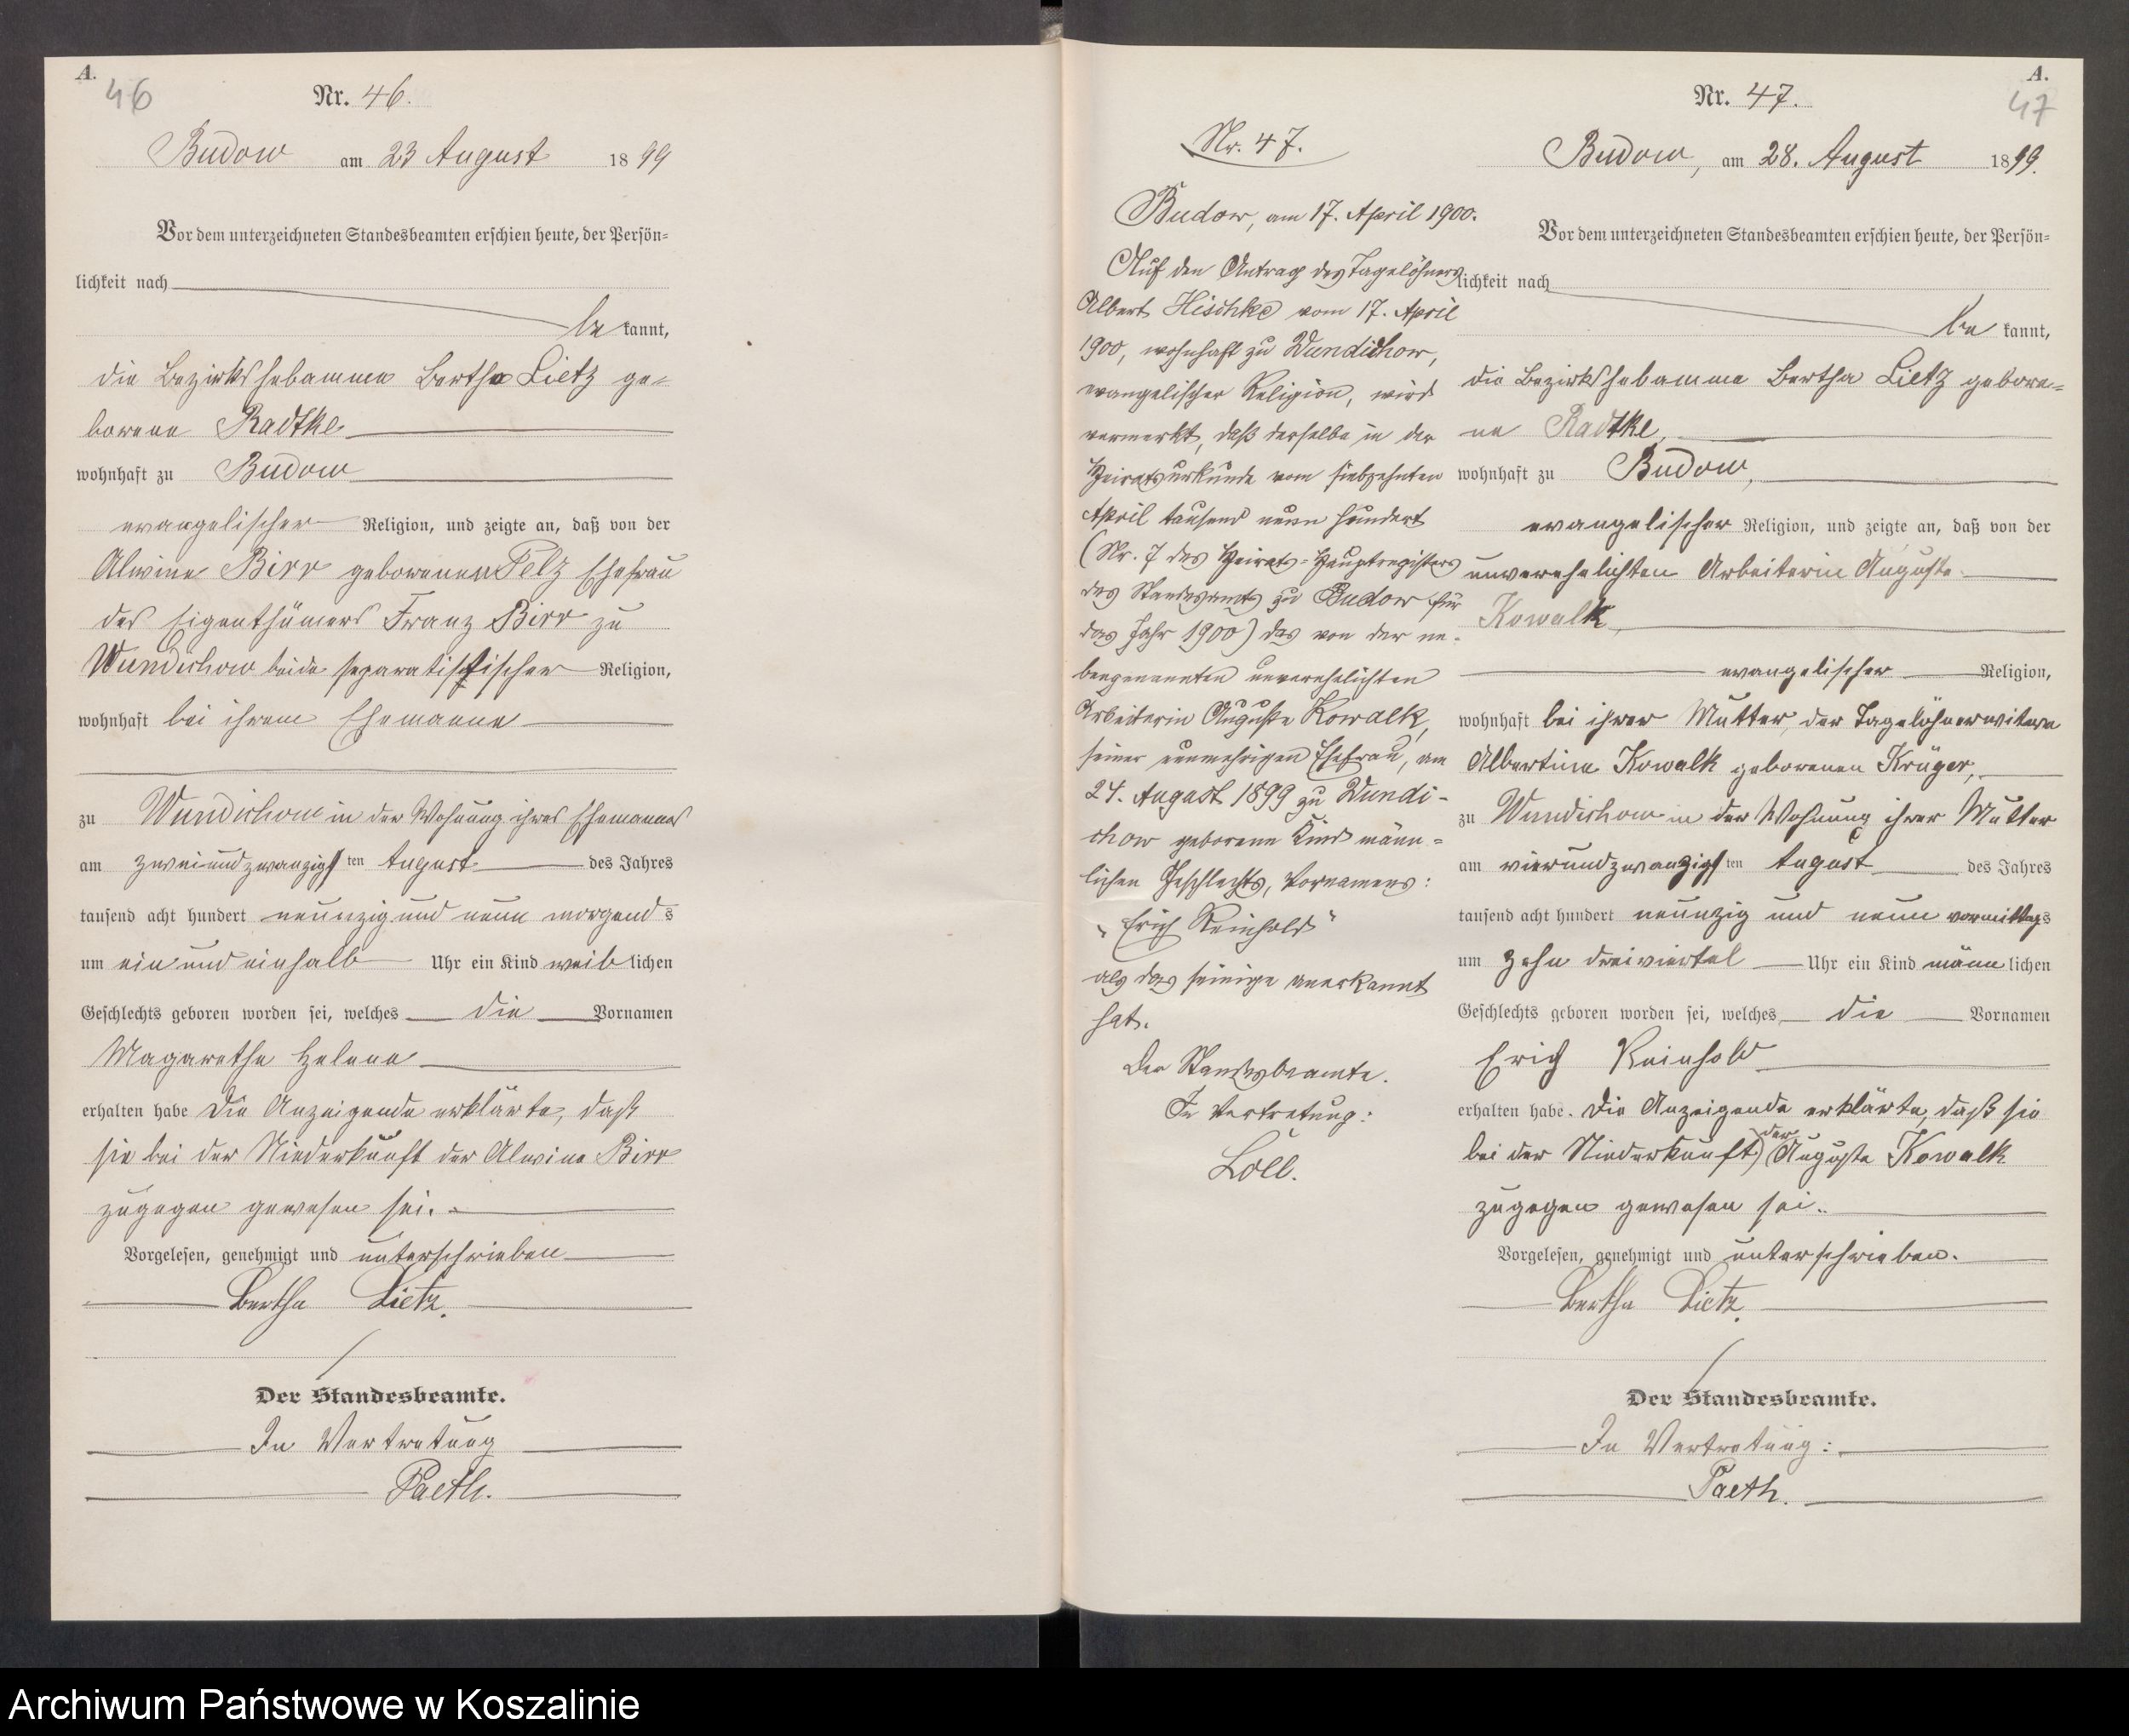 A.
46
Nr. 46.
Budow am 23 August 1899
Vor dem unterzeichneten Standesbeamten erschien heute, der Persön-
lichkeit nach
be kannt,
die Bezirkshebamme Bertha Lietz ge-
borene Radtke
wohnhaft zu Budow
evangelischer Religion, und zeigte an, daß von der
Alwine Birr geborenen Pelz Ehefrau
des Eigenthümers Franz Birr zu
Wundichow beide separatistischer Religion,
wohnhaft bei ihrem Ehemanne
zu Wundichow in der Wohnung ihres Ehemannes
am zweiundzwanzigsten August des Jahres
tausend acht hundert neunzig und neun morgends
um ein und einhalb Uhr ein Kind weiblichen
Geschlechts geboren worden sei, welches die Vornamen
Magarethe Helene
erhalten habe Die Anzeigende erklärte, daß
sie bei der Niederkunft der Alwine Birr
zugegen gewesen sei.
Vorgelesen, genehmigt und unterschrieben
Bertha Lietz.
Der Standesbeamte.
In Vertretung
Paeth.
Nr. 47.
Budow, am 17. April 1900.
Auf den Antrag des Tagelöhners
Albert Hischke vom 17. April
1900, wohnhaft zu Wundichow,
evangelischer Religion, wird
vermerkt, daß derselbe in der
Heiratsurkunde vom siebzehnten
April tausend neun hundert
(Nr. 7 des Heirats-Hauptregisters
des Standesamts zu Budow für
das Jahr 1900) das von der ne-
bengenannten unverehelichten
Arbeiterin Auguste Kowalk,
seiner nunmehrigen Ehefrau, am
24. August 1899 zu Wundi-
chow geborene Kind männ-
lichen Geschlechts, Vornamens:
"Erich Reinhold"
als das seinige anerkannt
hat.
Der Standesbeamte.
In Vertretung:
Löll.
A.
47
Nr. 47.
Budow, am 28. August 1899.
Vor dem unterzeichneten Standesbeamten erschien heute, der Persön-
lichkeit nach
be kannt,
die Bezirkshebamme Bertha Lietz gebore-
ne Radtke,
wohnhaft zu Budow,
evangelischer Religion, und zeigte an, daß von der
unverehelichten Arbeiterin Auguste
Kowalk,
evangelischer Religion,
wohnhaft bei ihrer Mutter, der Tagelöhnerwitwe
Albertine Kowalk geborenen Krüger,
zu Wundichow in der Wohnung ihrer Mutter
am vierundzwanzigsten August des Jahres
tausend acht hundert neunzig und neun vormittags
um zehn dreiviertel Uhr ein Kind männlichen
Geschlechts geboren worden sei, welches die Vornamen
Erich Reinhold
erhalten habe. Die Anzeigende erklärte, daß sie
bei der Niederkunft der Auguste Kowalk
zugegen gewesen sei.
Vorgelesen, genehmigt und unterschrieben.
Bertha Lietz.
Der Standesbeamte.
In Vertretung:
Paeth.
Archiwum Państwowe w Koszalinie